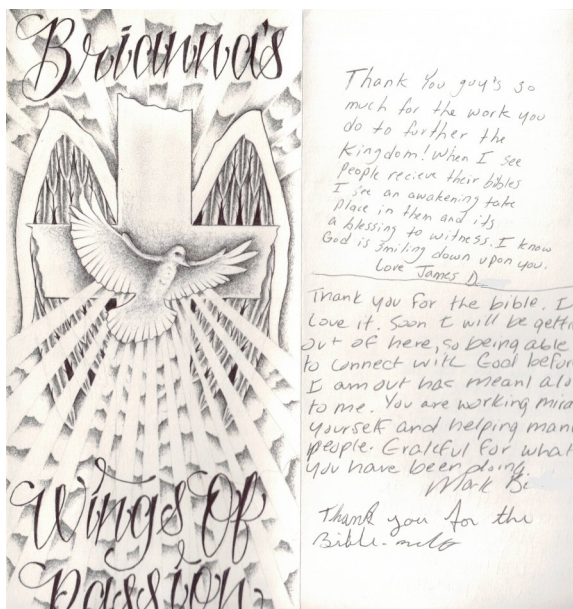 Brianna's
Wings Of
Passion
Thank You guy's so
much for the work you
do to further the
Kingdom! When I see
people recieve their bibles
I see an awakening take
place in them and its
a blessing to witness. I know
God is smiling down upon you.
Love James D.
Thank you for the bible. I
Love it. Soon I will be getti
out of here, so being able
to connect with God befor
I am out has meant alo
to me. You are working mira
yourself and helping man
people. Grateful for what
you have been doing.
Mark Bi
Thank you for the
Bible.